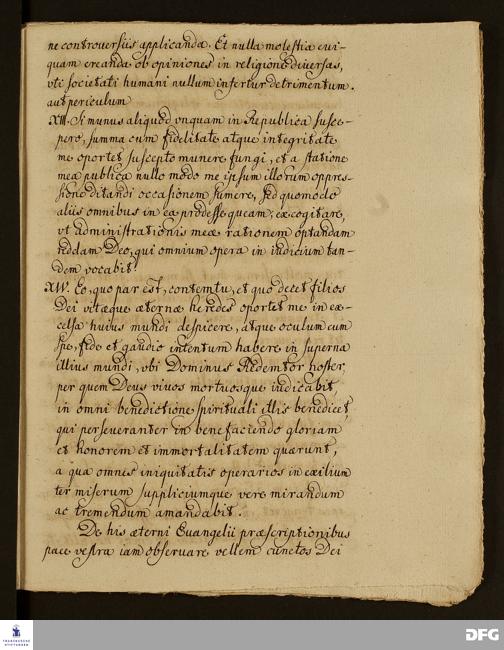 ne controversiis applicanda. Et nulla molestia cui-
quam creanda ob opiniones in religione diversas,
vti societati humani nullum infertur detrimentum.
aut periculum
XIII. Si munus aliquod vnquam in Republica susce-
pero, summa cum fidelitate atque integritate
me oportet suscepto munere fungi, et a statione
mea publica nullo modo me ipsum illorum oppres-
sione ditandi occasionem sumere, sed quomodo
aliis omnibus in ea prodesse queam, excogitare,
vt administrationis meæ rationem optandam
reddam Deo, qui omnium opera in iudicium tan-
dem vocabit.
XIV. Eo, quo par est, contemtu, et quo decet filios
Dei vitæque æternæ heredes oportet me in ex-
celsa huius mundi despicere, atque oculum cum
spe, fide et gaudio intentum habere in superna
illius mundi, vbi Dominus Redemtor noster,
per quem Deus vivos mortuosque iudicabit,
in omni benedictione spirituali illis benedicet,
qui perseueranter in benefaciendo gloriam
et honorem et immortalitatem quærunt,
a qua omnes iniquitatis operarios in exilium
ter miserum suppliciumque vere mirandum
ac tremendum amandabit.
De his æterni Euangelii præscriptionibus
pace vestra iam observare vellem cunctos Dei
FRANCKESCHE STIFTUNGEN
DFG